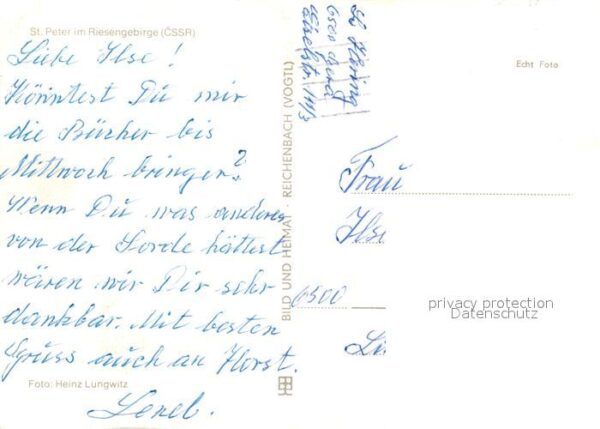 St. Peter im Riesengebirge (ČSSR)
Liebe Ilse!
Könntest Du mir
die Bücher bis
Mittwoch bringen?
Wenn Du was anderes
von der Sorde hättest
wären wir Dir sehr
dankbar. Mit besten
Gruss auch an Horst.
Foto: Heinz Lungwitz
BILD UND HEIMAT REICHENBACH (VOGTL)
6500 Gera
Echt Foto
Frau
Ilse
6500
privacy protection
Datenschutz